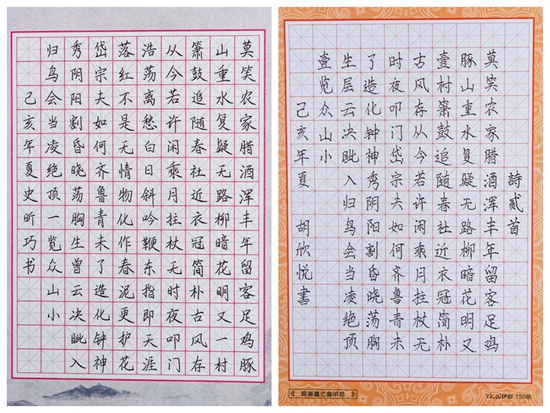 莫笑农家腊酒浑丰年留客足鸡豚
山重水复疑无路柳暗花明又一村
箫鼓追随春社近衣冠简朴古风存
从今若许闲乘月拄杖无时夜叩门
浩荡离愁白日斜吟鞭东指即天涯
落红不是无情物化作春泥更护花
岱宗夫如何齐鲁青未了造化钟神
秀阴阳割昏晓荡胸生曾云决眦入
归鸟会当凌绝顶一览众山小
己亥年夏史昕巧书
詩貳首
莫笑农家腊酒浑丰年留客足鸡
豚山重水复疑无路柳暗花明又
壹村箫鼓追随春社近衣冠简朴
古风存从今若许闲乘月拄杖无
时夜叩门岱宗夫如何齐鲁青未
了造化钟神秀阴阳割昏晓荡胸
生层云决眦入归鸟会当凌绝顶
壹览众山小
己亥年夏 胡欣悦書
150格